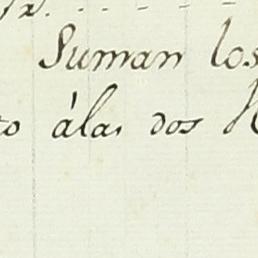 Suman los
álas dos